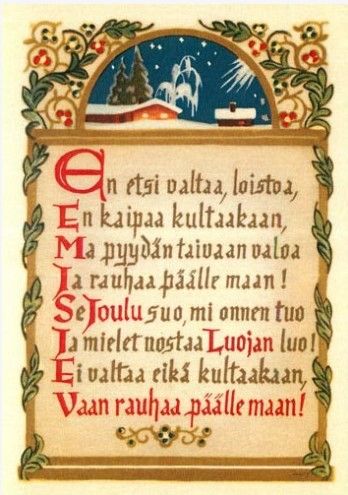 En etsi valtaa, loistoa,
En kaipaa kultaakaan,
Ma pyydän taivaan valoa
Ja rauhaa päälle maan!
Se Joulu suo, mi onnen tuo
Ja mielet nostaa Luojan luo!
Ei valtaa eikä kultaakaan,
Vaan rauhaa päälle maan!